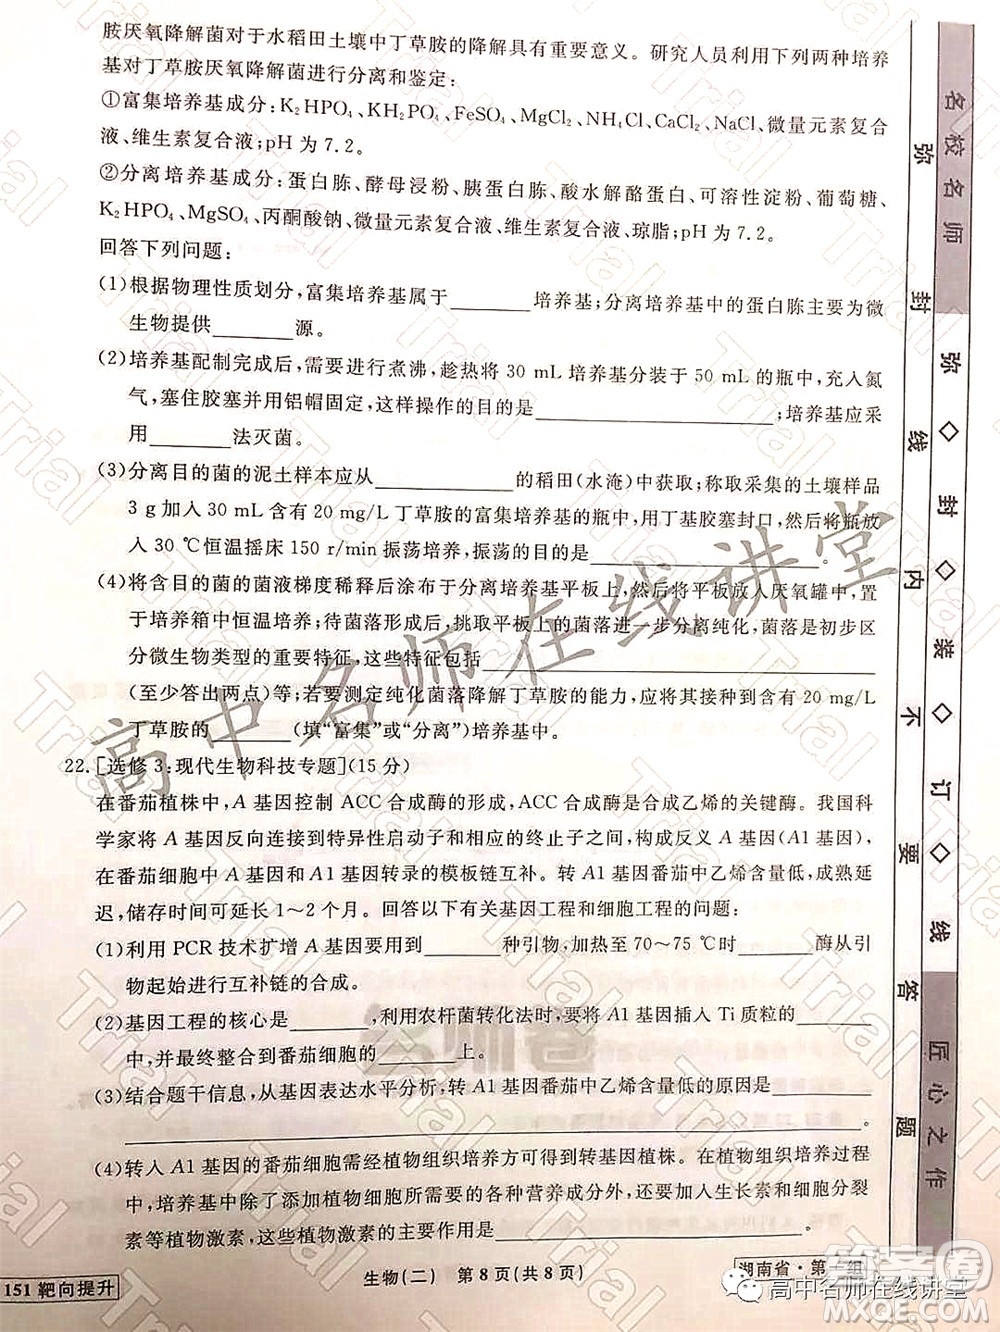 胺厌氧降解菌对于水稻田土壤中丁草胺的降解具有重要意义。研究人员利用下列两种培养
基对丁草胺厌氧降解菌进行分离和鉴定：
①富集培养基成分：K₂HPO₄、KH₂PO₄、FeSO₄、MgCl₂、NH₄Cl、CaCl₂、NaCl、微量元素复合
液、维生素复合液；pH 为 7.2。
②分离培养基成分：蛋白胨、酵母浸粉、胰蛋白胨、酸水解酪蛋白、可溶性淀粉、葡萄糖、
K₂HPO₄、MgSO₄、丙酮酸钠、微量元素复合液、维生素复合液、琼脂；pH 为 7.2。
回答下列问题：
(1)根据物理性质划分，富集培养基属于________培养基；分离培养基中的蛋白胨主要为微
生物提供________源。
(2)培养基配制完成后，需要进行煮沸，趁热将 30 mL 培养基分装于 50 mL 的瓶中，充入氮
气，塞住胶塞并用铝帽固定，这样操作的目的是________________；培养基应采
用________法灭菌。
(3)分离目的菌的泥土样本应从__________的稻田(水淹)中获取；称取采集的土壤样品
3 g 加入 30 mL 含有 20 mg/L 丁草胺的富集培养基的瓶中，用丁基胶塞封口，然后将瓶放
入 30 ℃恒温摇床 150 r/min 振荡培养，振荡的目的是________________。
(4)将含目的菌的菌液梯度稀释后涂布于分离培养基平板上，然后将平板放入厌氧罐中，置
于培养箱中恒温培养；待菌落形成后，挑取平板上的菌落进一步分离纯化，菌落是初步区
分微生物类型的重要特征，这些特征包括________________________
(至少答出两点)等；若要测定纯化菌落降解丁草胺的能力，应将其接种在含有 20 mg/L
丁草胺的________(填“富集”或“分离”)培养基中。
22.[选修 3：现代生物科技专题](15 分)
在番茄植株中，A 基因控制 ACC 合成酶的形成，ACC 合成酶是合成乙烯的关键酶。我国科
学家将 A 基因反向连接到特异性启动子和相应的终止子之间，实现了 A 基因(A1 基因)在
番茄细胞中与 A 基因转录的模板链互补。转 A1 基因番茄果实中乙烯合成量降低，成熟延
迟，储存时间可延长 1～2 个月。回答以下有关基因工程和细胞工程的问题：
(1)利用 PCR 技术扩增 A 基因要用到________种引物，加热至 70～75 ℃时________酶从引
物起始进行互补链的合成。
(2)基因工程的核心是________，利用农杆菌转化法时，要将 A1 基因插入 Ti 质粒的________
中，并最终整合到番茄细胞的________上。
(3)结合题干信息，从基因表达水平分析，转 A1 基因番茄中乙烯含量减少的原因是________
________________________________________。
(4)转入 A1 基因的番茄细胞需经植物组织培养方可获得转基因植株。在组织培养过程中，
培养基中除了添加植物细胞生长所必需的各种营养成分外，还要加入生长素和细胞分裂
素等植物激素，这些植物激素的主要作用是________________________。
151 靶向提升
生物(二) 第 8 页(共 8 页)
湖南省·第二组
名校名师
匠心之作
弥封线内不要答题
弥◇封◇装◇订◇线
高中名师在线讲堂
高中名师在线讲堂
答案圈
MXQE.COM
Trial